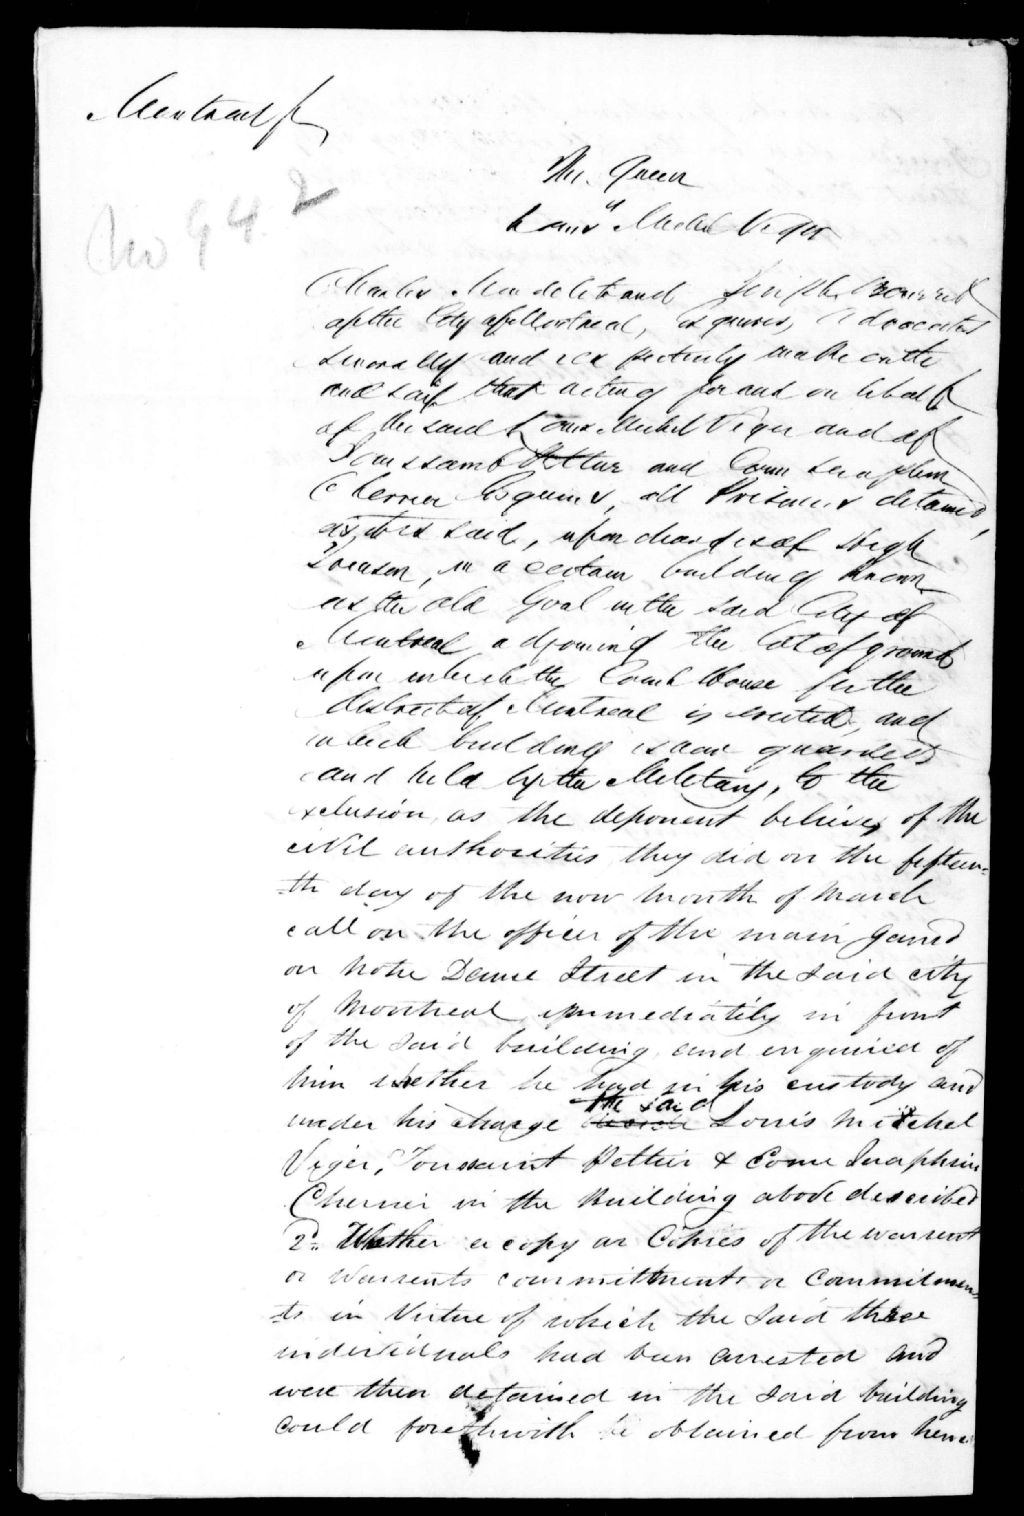 Montreal
No 94.2
The Queen
vs
Louis Michel Viger
Charles Mondelet and Joseph Bourret
of the City of Montreal, Esquires, Advocates
severally and respectively make oath
and say that acting for and on behalf
of the said Louis Michel Viger and of
Toussaint Peltier and Come Seraphin
Cherrier Esquires, all Prisoners detained,
as it is said, upon charges of High
Treason, in a certain building known
as the old Goal in the said City of
Montreal adjoining the lot of ground
upon which the Court House for the
District of Montreal is erected, and
which building is now guarded
and held by the Military, to the
exclusion, as the deponent believes, of the
civil authorities they did on the fifteen-
-th day of the now month of March
call on the officer of the main Gaurd
on Notre Dame Street in the said city
of Montreal immediately in front
of the said building and enquired of
him whether he had in his custody and
under his charge the said Louis Mitchel
Viger, Toussaint Peltier & Come Seraphin
Cherrier in the Building above described
2d. Whether a copy or Copies of the warrent
or warrents committment or Committmen-
-ts in Virtue of which the said these
individuals had been arrested and
were then detained in the said building
could forethwith be obtained from him